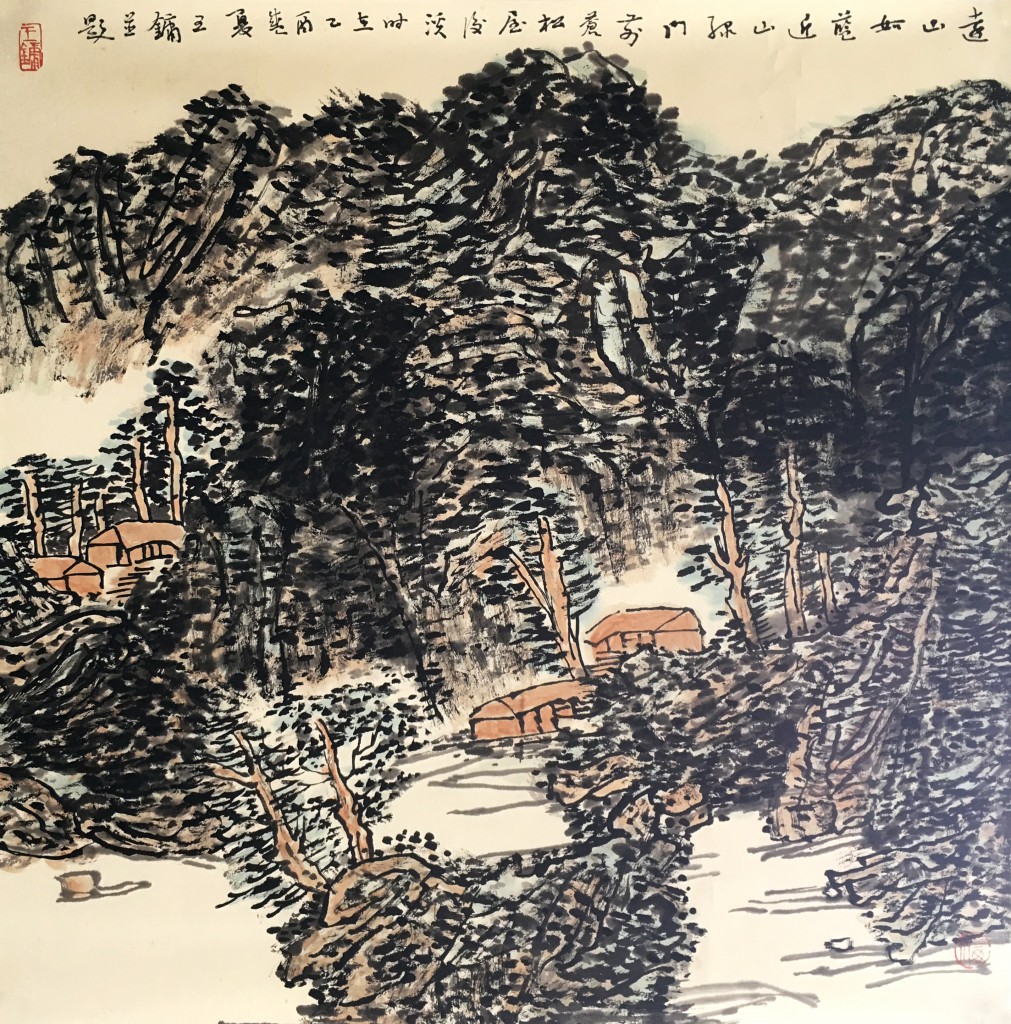 遠山如藍近山綠門前蒼松屋後溪时在乙酉盛夏王鏞並題
王鏞